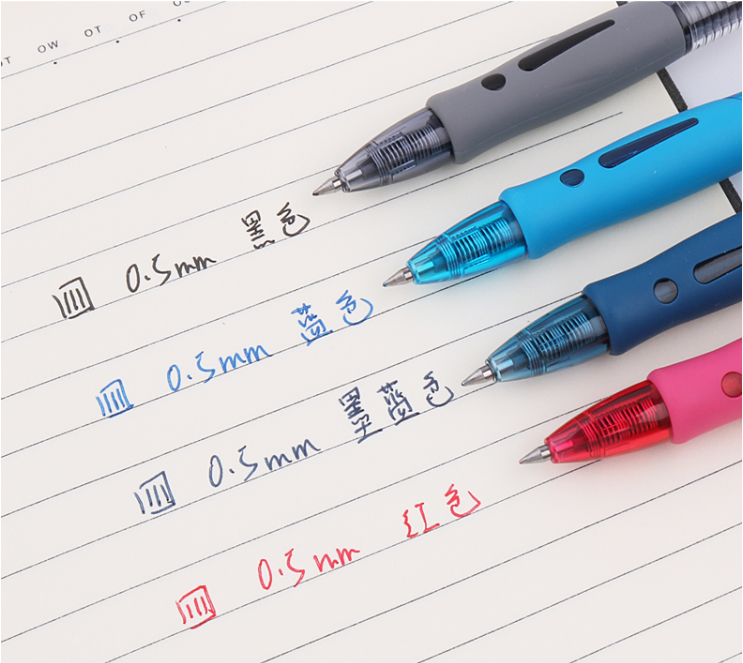 OT OW OT OF
0.5mm 黑色
0.5mm 蓝色
0.5mm 墨蓝色
0.5mm 红色